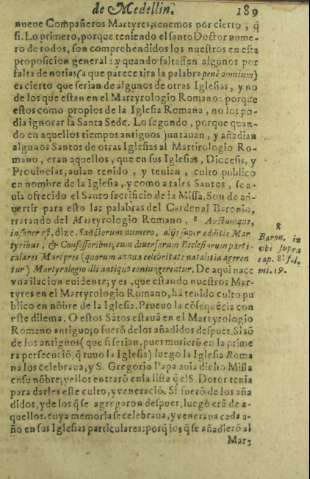 de Medellin. 189
nueue Compañeros Martyres, tenemos por cierto, q̃
si. Lo primero, porque teniendo el santo Doctor nume-
ro de todos, son comprehendidos los nuestros en esta
proposicion general: y quando faltassen algunos por
falta de notias (a que parece tira la palabra penè omnium)
es cierto que serian de algunos de otras Iglesias, y no
de los que estan en el Martyrologio Romano: porque
estos como propios de la Iglesia Romana, no los po-
dia ignorar la Santa Sede. Lo segundo, porque quan-
do en aquellos tiempos antiguos juntauan, y añadian
algunos Santos de otras Iglesias al Martirologio Ro-
mano, eran aquellos, que en sus Iglesias, Diocesis, y
Prouincias, auian tenido, y tenian, culto publico
en nombre de la Iglesia, y como a tales Santos, se a-
uia ofrecido el Santo sacrificio de la Missa. Son de ad-
uertir para esto las palabras del Cardenal Baronio,
tratando del Martyrologio Romano, 8 Auctumque,
dize. Sanctorum numero, alijs additis Mar-
tyribus, & Confessoribus, cum diuersarum Ecclesiarum parti-
culares Martyres (quorum annua celebritate natalitia ageren
tur) Martyrologio illi antiquo coniungerentur. De aqui nace
vna ilacion euidente; y es, que estando nuestros Mar-
tyres en el Martyrologio Romano, ha tenido culto pu
blico en nombre de la Iglesia. Prueuo la consequēcia con
este dilema. O estos Sātos estauā en el Martyrologio
Romano antiguo; o fuerō de los añadidos despues. Si
de los antiguos (que si serian, pues murierō en la prime
ra persecuciō, q̃ tuuo la Iglesia) luego la Iglesia Roma
na los celebraua, y S. Gregorio Papa auia dicho Missa
en su nōbre, y ellos entrarō en la lista q̃ el S. Dotor tenia
para darles este culto, y veneraciō. Si fuerō de los aña
didos, y de los q̃ se agregaron despues, luego erā de a-
quellos, cuya memoria se celebraua, y veneraua cada a-
ño en sus Iglesias particulares: porq̃ los q̃ se añadierō al
Mar-
8
Baron. in
cap. 8.